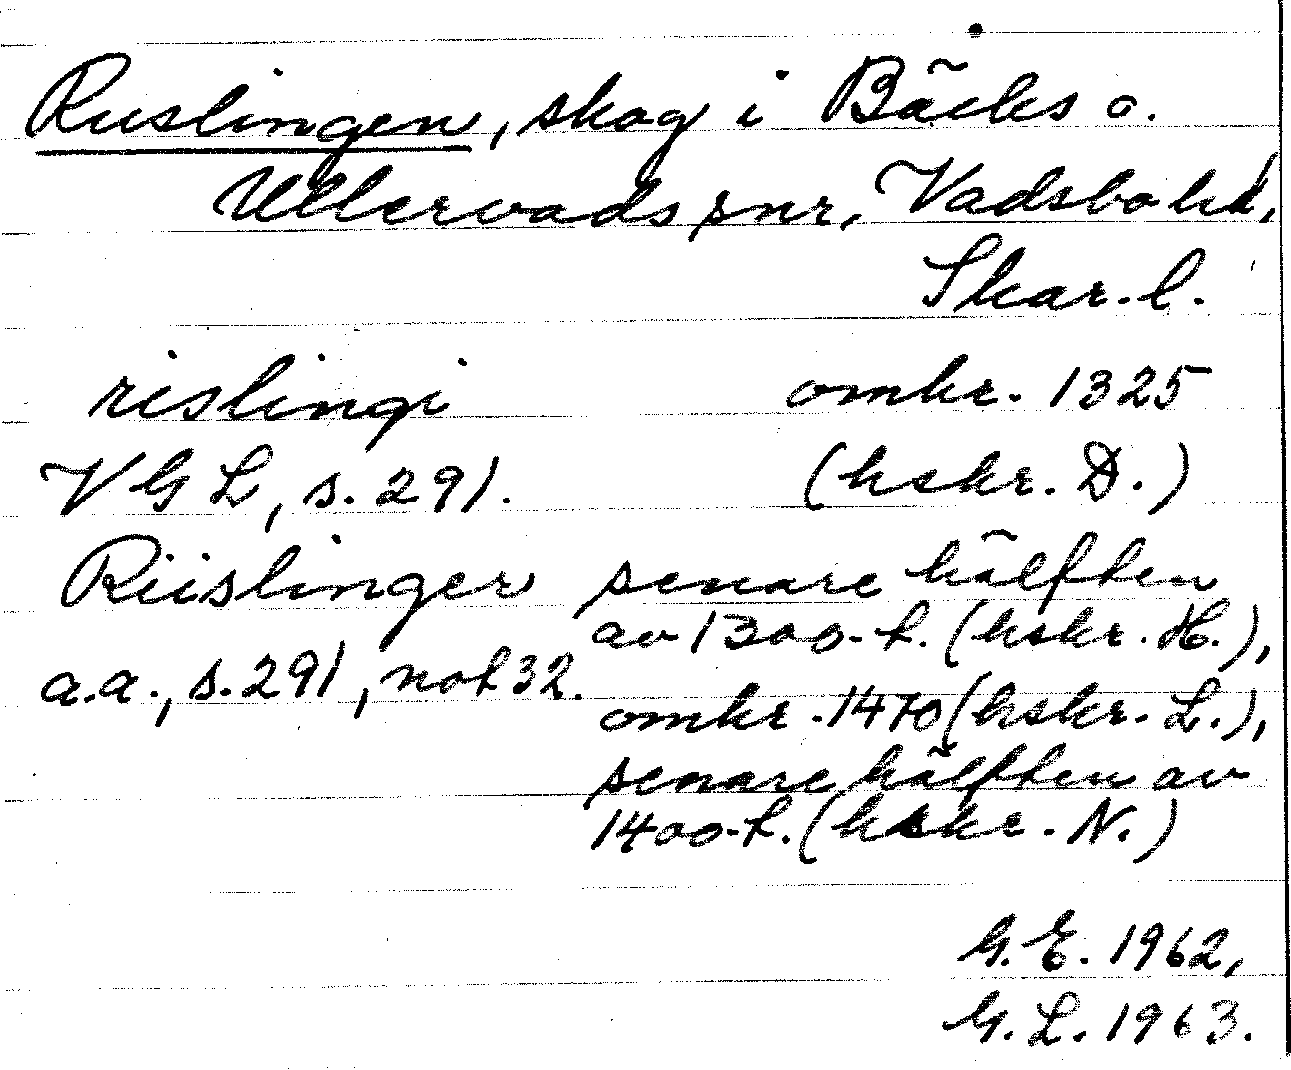 Ruslingen, skog i Bäcks o.
Ullervads snr, Vadsbo hd,
Skar. l.
rislingi omkr. 1325
VGL, s. 291. (hskr. D.)
Riislinger senare hälften
av 1300-t. (hskr. H.),
a.a., s. 291, not 32.
omkr. 1470 (hskr. L.),
senare hälften av
1400-t. (hskr. N.)
G.E. 1962,
G.L. 1963.